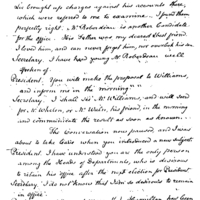 his brought up charges against his accounts there,
which were referred to me to examine. I found them
perfectly right. Mr Robardeau is another Candidate
for the office. His Father was my dearest best friend
I loved him, and can never forget him, nor overlook his son
Secretary. I have heard young Robardeau well
spoken of.
President. You will make the proposal to Williams,
and inform me in the morning."
Secretary. I shall see Mr Williams, and will send
for Mr Whelen, or Mr Waln, his friend, in the morning
and communicate the result as soon as known.
The Conversation now paused, and I was
about to take leave when you introduced a new subject.
President. I have understood you are the only person
among the Heads of Departments, who is desirous
to retain his office after the next election for President
Secretary. I do not know that I am so desirous to remain
in office